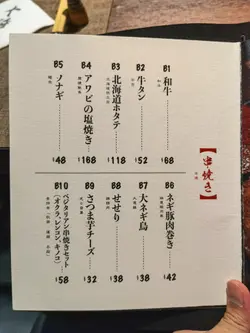 【串焼き】
B1
和牛
$68
B2
牛タン
$52
B3
北海道ホタテ
$118
B4
アワビの塩焼き
$168
B5
ツナギ
$48
B6
ネギ豚肉巻き
$42
B7
大ネギ鳥
$38
B8
せせり
$38
B9
さつま芋チーズ
$32
B10
ベジタリアン串焼きセット
(オクラ、レンコン、キノコ)
$58